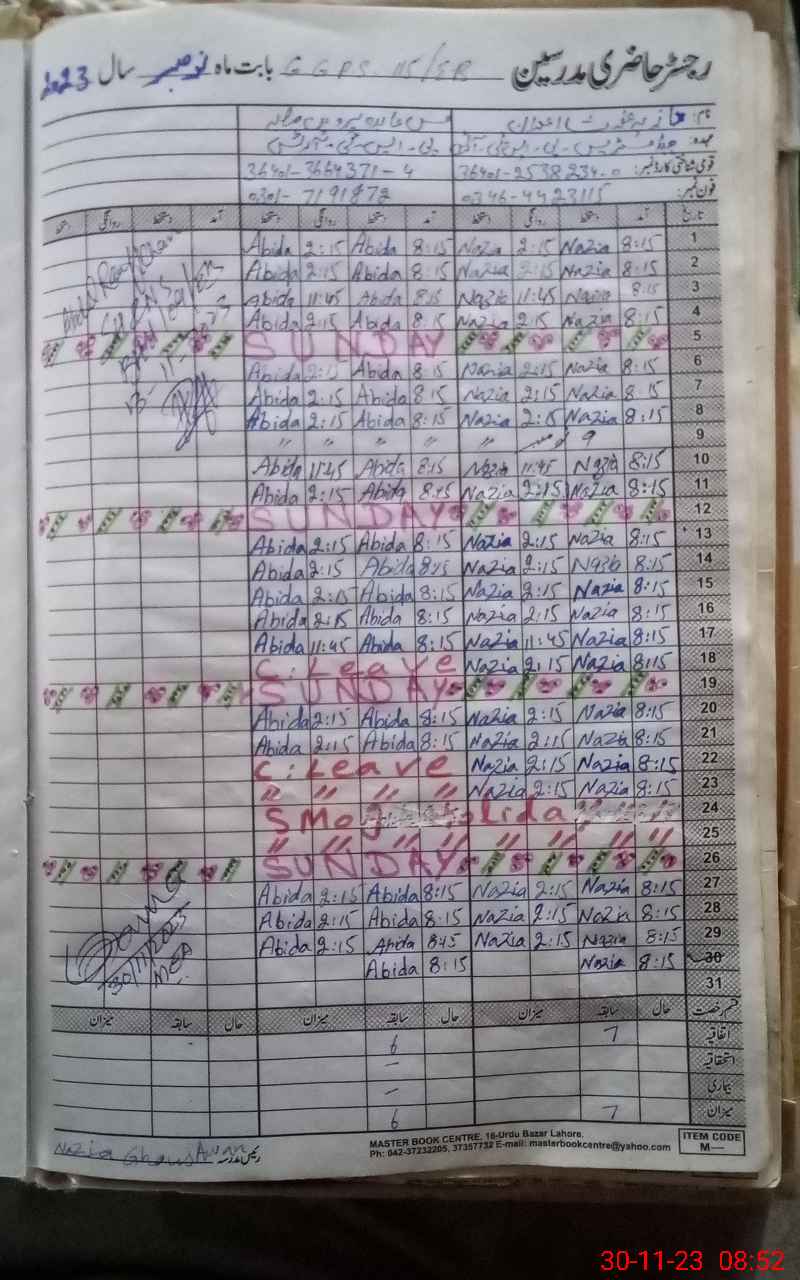 رجسٹر حاضری مدرسین G G P S. 115/ER بابت ماہ نومبر سال 2023
نام:
عہدہ:
قومی شناختی کارڈ نمبر: 36401-2538234-0 36401-3664371-4
فون نمبر: 0346-4423115 0301-7191872
تاریخ آمد دستخط روانگی دستخط آمد دستخط روانگی دستخط آمد دستخط روانگی دستخط
1 8:15 Nazia 2:15 Nazia 8:15 Abida 2:15 Abida
2 8:15 Nazia 2:15 Nazia 8:15 Abida 2:15 Abida
3 8:15 Nazia 11:45 Nazia 8:15 Abida 11:45 Abida
4 8:15 Nazia 2:15 Nazia 8:15 Abida 2:15 Abida
5 SUNDAY
6 8:15 Nazia 2:15 Nazia 8:15 Abida 2:15 Abida
7 8:15 Nazia 2:15 Nazia 8:15 Abida 2:15 Abida
8 8:15 Nazia 2:15 Nazia 8:15 Abida 2:15 Abida
9 9 〃 〃 〃 〃 〃
10 8:15 Nazia 11:45 Nazia 8:15 Abida 11:45 Abida
11 8:15 Nazia 2:15 Nazia 8:15 Abida 2:15 Abida
12 SUNDAY
13 8:15 Nazia 2:15 Nazia 8:15 Abida 2:15 Abida
14 8:15 Nazia 2:15 Nazia 8:15 Abida 2:15 Abida
15 8:15 Nazia 2:15 Nazia 8:15 Abida 2:15 Abida
16 8:15 Nazia 2:15 Nazia 8:15 Abida 2:15 Abida
17 8:15 Nazia 11:45 Nazia 8:15 Abida 11:45 Abida
18 8:15 Nazia 2:15 Nazia C: Leave
19 SUNDAY
20 8:15 Nazia 2:15 Nazia 8:15 Abida 2:15 Abida
21 8:15 Nazia 2:15 Nazia 8:15 Abida 2:15 Abida
22 8:15 Nazia 2:15 Nazia C: Leave
23 8:15 Nazia 2:15 Nazia 〃 〃 〃 〃
24 Smog
25 〃 〃 〃 〃 〃 〃 〃 〃
26 SUNDAY
27 8:15 Nazia 2:15 Nazia 8:15 Abida 2:15 Abida
28 8:15 Nazia 2:15 Nazia 8:15 Abida 2:15 Abida
29 8:15 Nazia 2:15 Nazia 8:15 Abida 2:15 Abida
30 8:15 Nazia 8:15 Abida
31
30/11/2023
MEA
قسم رخصت حال سابقہ میزان حال سابقہ میزان حال سابقہ میزان
اتفاقیہ 7 6
استحقاقیہ –
بیماری –
میزان 7 6
Nazia Ghous Awan رئیس مدرسہ
MASTER BOOK CENTRE, 16-Urdu Bazar Lahore.
Ph: 042-37232205, 37357732 E-mail: masterbookcentre@yahoo.com
ITEM CODE
M—
30-11-23 08:52